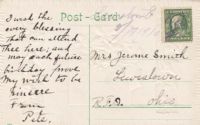 Post Card
I wish thee
every blessing
that can attend
thee here, and
may each future
birthday prove
My wish to be
sincere
from
Pete.
Mrs Jerome Smith
Lewistown
R.F.D. Ohio